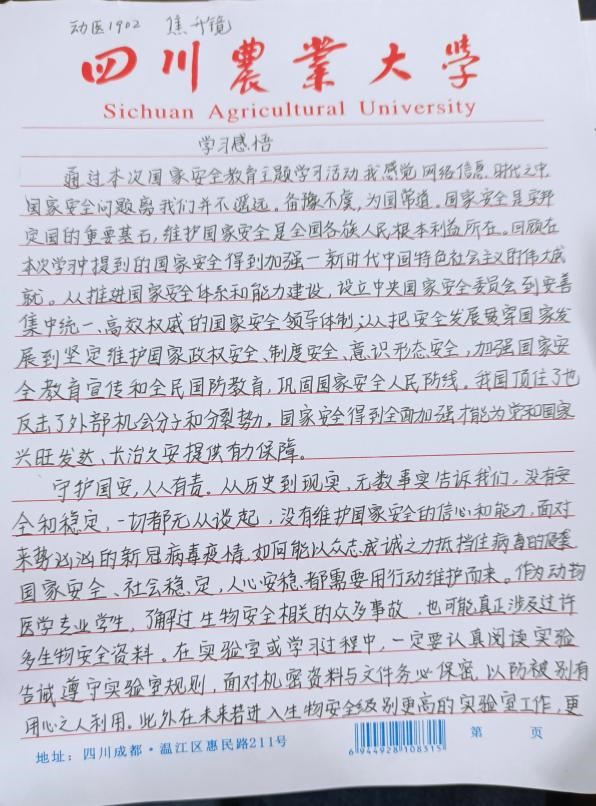 动医1902 焦升镜
四川農業大学
Sichuan Agricultural University
学习感悟
通过本次国家安全教育主题学习活动我感觉网络信息时代之中,
国家安全问题离我们并不遥远。备豫不虞,为国常道。国家安全是安邦
定国的重要基石,维护国家安全是全国各族人民根本利益所在。回顾在
本次学习中提到的国家安全得到加强—新时代中国特色社会主义的伟大成
就。从推进国家安全体系和能力建设,设立中央国家安全委员会到完善
集中统一、高效权威的国家安全领导体制;从把安全发展贯穿国家发
展到坚定维护国家政权安全、制度安全、意识形态安全,加强国家安
全教育宣传和全民国防教育,巩固国家安全人民防线。我国顶住了也
反击了外部机会分子和分裂势力,国家安全得到全面加强才能为党和国家
兴旺发达、长治久安提供有力保障。
守护国安,人人有责。从历史到现实,无数事实告诉我们,没有安
全和稳定,一切都无从谈起,没有维护国家安全的信心和能力,面对
来势汹汹的新冠病毒疫情,如何能以众志成诚之力抵挡住病毒的侵袭
国家安全、社会稳定,人心安稳都需要用行动维护而来。作为动物
医学专业学生,了解过生物安全相关的众多事故,也可能真正涉及过许
多生物安全资料。在实验室或学习过程中,一定要认真阅读实验
告诫遵守实验室规则,面对机密资料与文件务必保密,以防被别有
用心之人利用。此外在未来若进入生物安全级别更高的实验室工作,更
地址:四川成都·温江区惠民路211号
6944928108315
第 页